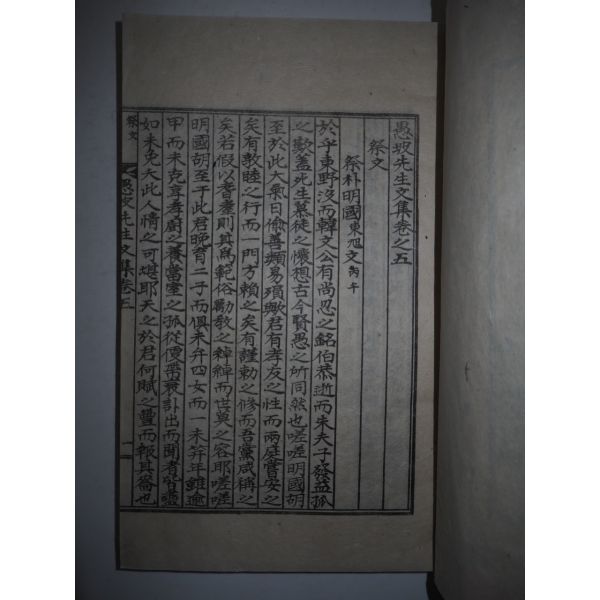 愚坡先生文集卷之五
祭文
祭朴明國東旭文丙午
於乎東野沒而韓文公有尚忍之銘伯恭逝而朱夫子發益孤
之歎蓋死生慕徒之懷想古今賢愚之所同然也嗟嗟明國胡
至於此大氣日偸善類易殞歟君有孝友之性而兩庭嘗安之
矣有敦睦之行而一門方賴之矣有謹勅之修而吾黨咸稱之
矣若假以耆耋則其爲範俗勵敎之綽綽而世與之容耶嗟嗟
明國胡至于此君晩育二子而俱未弁四女而一未筓年雖逾
甲而未克享孝廚之養當室之孤從便帶衰訃出而聞者皆盡
如未免夭此人情之可堪耶天之於君何賦之豐而報其嗇也
祭文
愚坡先生文集卷五
一